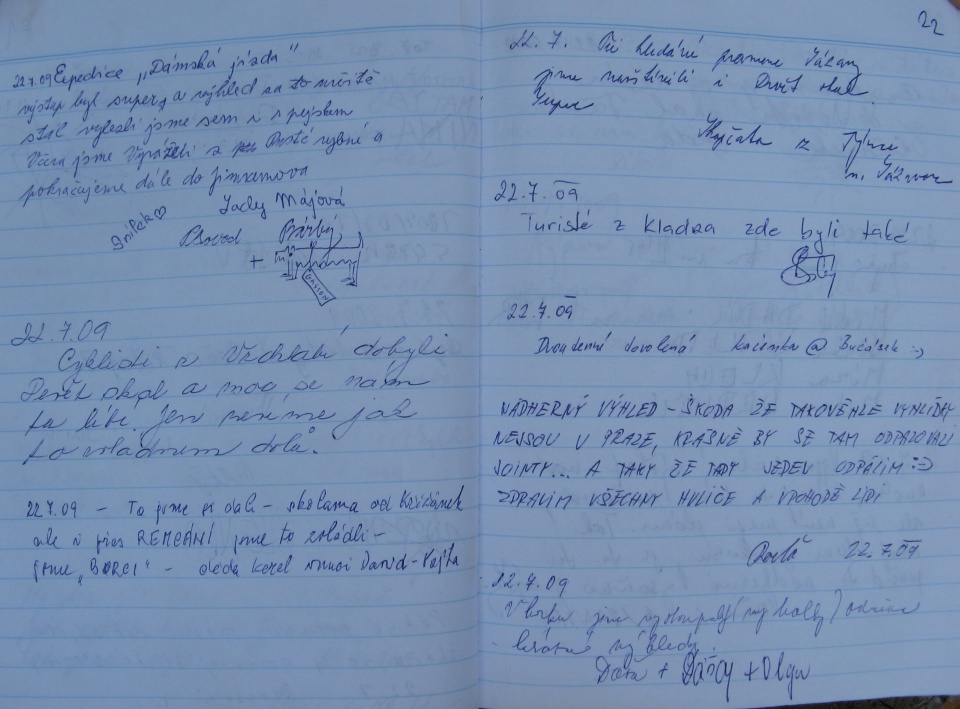 22.7.09 Expedice „Dámská jízda"
výstup byl super, a výhled za to určitě
stál vylezli jsme sem i s pejskem
Včera jsme vyráželi z Pusté rybné a
pokračujeme dále do jimramova
Sady Májová
Bárbý
+
GASTON
22.7.09
Cyklisti z Vrchlabí dobyli
Devět skal a moc se nám
tu líbí, jen nevíme jak
to zvládnem dolů.
22.7.09 – To jsme si dali – oklama od Křižánek
ale i přes REMCÁNÍ jsme to zvládli –
jsme „BORCI" – děda Karel vnuci David – Vojta
22
22.7. Při hledání pramene Sázavy
jsme navštívili i Devět skal.
Super
z Týnce
n. Sázavou
22.7.09
Turisté z Kladna zde byli také
22.7.09
Dvoudenní dovolená Kačenka @ Bučásek :-)
NÁDHERNÝ VÝHLED – ŠKODA ŽE TAKOVÉHLE VYHLÍDKY
NEJSOU V PRAZE, KRÁSNĚ BY SE TAM ODPALOVALI
JOINTY... A TAKY ŽE TADY JEDEN ODPÁLIM :-)
ZDRAVIM VŠECHNY HULIČE A V POHODĚ LIDI
22.7.09
22.7.09
V horku jsme vystoupaly (my holky)
krásné výhledy.
Dáša + + Olga